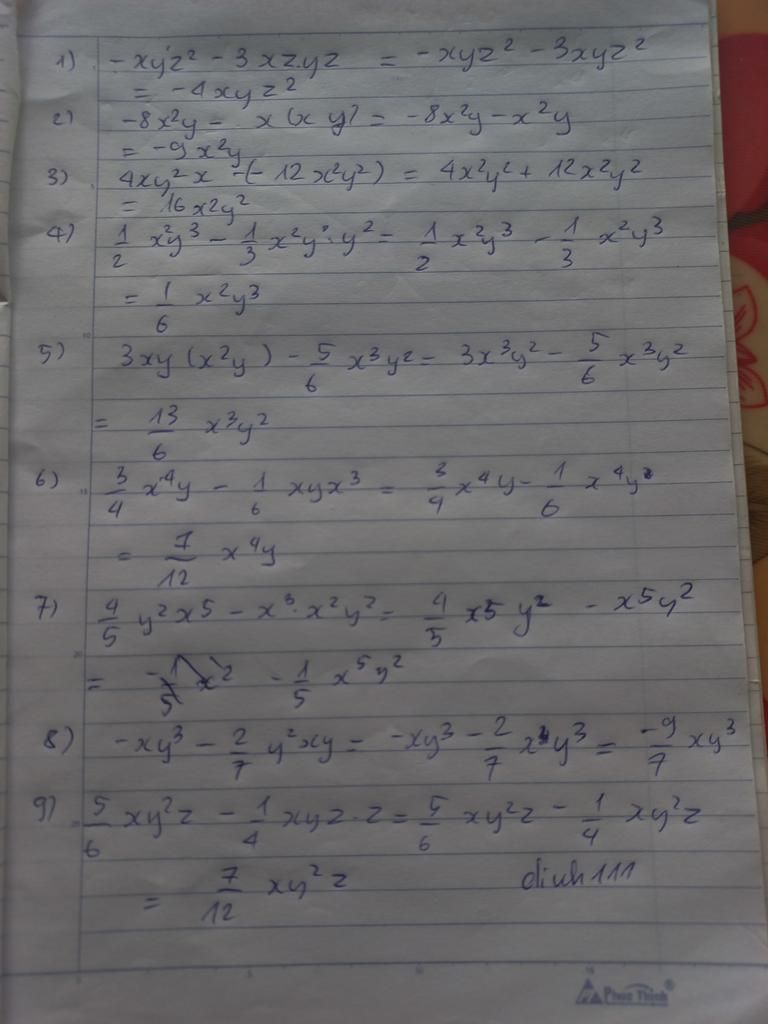 1) -xyz² - 3xz.yz = -xyz² - 3xyz²
= -4xyz²
2) -8x²y - x(xy) = -8x²y - x²y
= -9x²y
3) 4xy²x -(-12x²y²) = 4x²y² + 12x²y²
= 16x2y²
4) 1/2 x²y³ - 1/3 x²y.y² = 1/2 x²y³ - 1/3 x²y³
= 1/6 x²y³
5) 3xy(x²y) - 5/6 x³y² = 3x³y² - 5/6 x³y²
= 13/6 x³y²
6) 3/4 x⁴y - 1/6 xyx³ = 3/4 x⁴y - 1/6 x⁴y
= 7/12 x⁴y
7) 4/5 y²x5 - x³.x²y² = 4/5 x5y² - x5y²
= -1/5 x⁵y²
8) -xy³ - 2/7 y²xy = -xy³ - 2/7 xy³ = -9/7 xy³
9) 5/6 xy²z - 1/4 xyz.z = 5/6 xy²z - 1/4 xy²z
= 7/12 xy²z
dinh111
Phúc Thịnh®